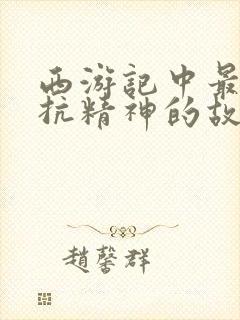 西游记中最
抗精神的故
趙馨群